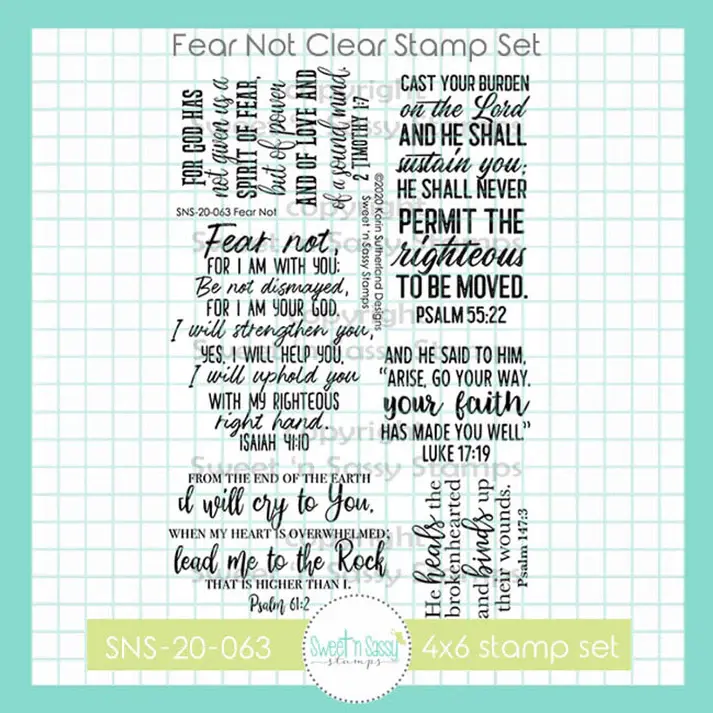 Fear Not Clear Stamp Set
FOR GOD HAS
not given us a
SPIRIT OF FEAR,
but of power
AND OF LOVE AND
of a sound mind.
2 TIMOTHY 1:7
SNS-20-063 Fear Not
©2020 Korin Sutherland Designs
Sweet 'n Sassy Stamps
CAST YOUR BURDEN
on the Lord
AND HE SHALL
sustain you;
HE SHALL NEVER
PERMIT THE
righteous
TO BE MOVED.
PSALM 55:22
Fear not,
FOR I AM WITH YOU;
Be not dismayed,
FOR I AM YOUR GOD.
I will strengthen you,
YES, I WILL HELP YOU,
I will uphold you
WITH MY RIGHTEOUS
right hand.
ISAIAH 41:10
AND HE SAID TO HIM,
"ARISE, GO YOUR WAY.
your faith
HAS MADE YOU WELL."
LUKE 17:19
FROM THE END OF THE EARTH
I will cry to You,
WHEN MY HEART IS OVERWHELMED;
lead me to the Rock
THAT IS HIGHER THAN I.
Psalm 61:2
He heals the
brokenhearted
and binds up
their wounds.
Psalm 147:3
copyright
Sweet 'n Sassy Stamps
copyright
Sweet 'n Sassy Stamps
copyright
Sweet 'n Sassy Stamps
copyright
Sweet 'n Sassy Stamps
copyright
Sweet 'n Sassy Stamps
SNS-20-063
Sweet 'n Sassy
stamps
4x6 stamp set